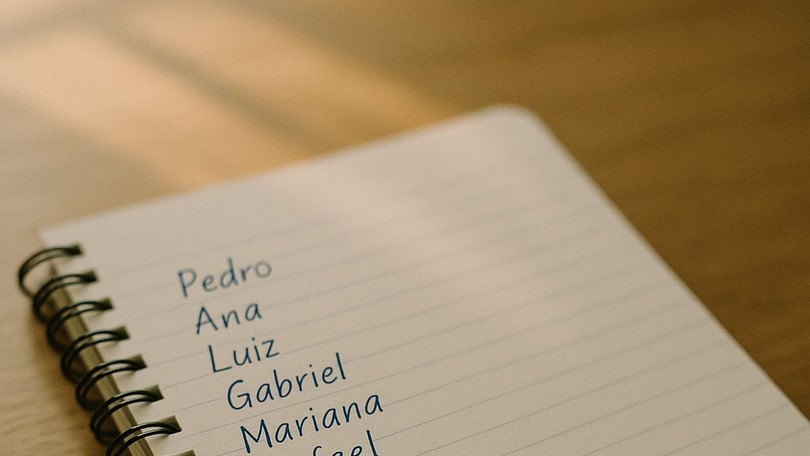 Pedro
Ana
Luiz
Gabriel
Mariana